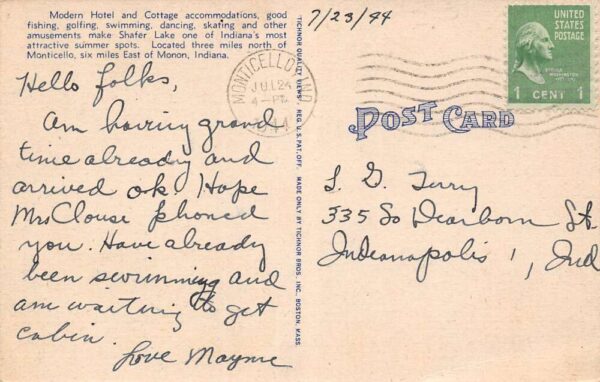 Modern Hotel and Cottage accommodations, good
fishing, golfing, swimming, dancing, skating and other
amusements make Shafer Lake one of Indiana's most
attractive summer spots. Located three miles north of
Monticello, six miles East of Monon, Indiana.
Hello folks,
Am having grand
time already and
arrived ok. Hope
Mrs Clouse phoned
you. Have already
been swimming and
am waiting to get
cabin.
Love Mayme
TICHNOR QUALITY VIEWS. REG. U. S. PAT. OFF. MADE ONLY BY TICHNOR BROS. INC., BOSTON, MASS.
7/23/44
MONTICELLO IND
JUL 24
4-PM
1944
UNITED
STATES
POSTAGE
1 CENT 1
POST CARD
L. G. Terry
335 So Dearborn St.
Indianapolis 1, Ind